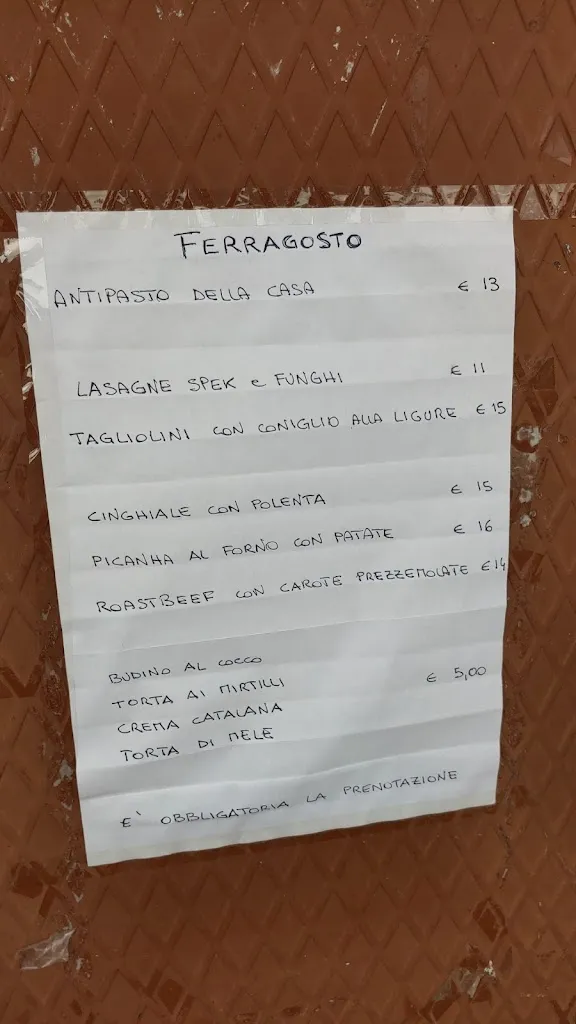 FERRAGOSTO
ANTIPASTO DELLA CASA € 13
LASAGNE SPEK e FUNGHI € 11
TAGLIOLINI CON CONIGLIO ALLA LIGURE € 15
CINGHIALE CON POLENTA € 15
PICANHA AL FORNO CON PATATE € 16
ROASTBEEF CON CAROTE PREZZEMOLATE € 14
BUDINO AL COCCO
TORTA AI MIRTILLI € 5,00
CREMA CATALANA
TORTA DI MELE
E' OBBLIGATORIA LA PRENOTAZIONE